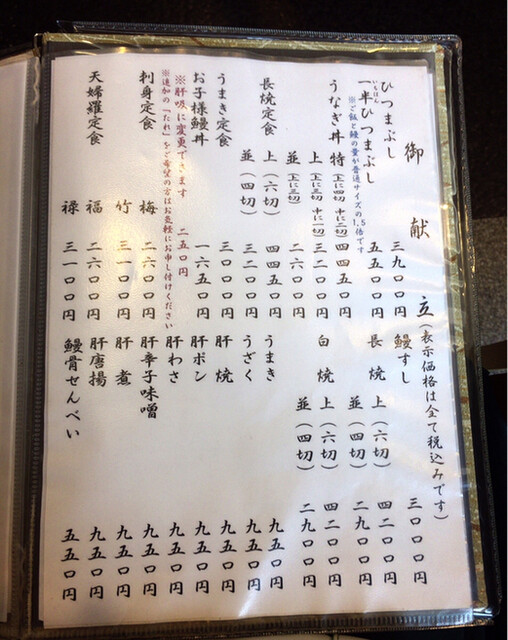 御献立（表示価格は全て税込みです）
ひつまぶし 三九〇〇円
いちはん
一半ひつまぶし 五五〇〇円
※ご飯と鰻の量が普通サイズの1.5倍です
うなぎ丼 特（上に四切 中に二切）四四五〇円
上（上に三切 中に一切）三二〇〇円
並（上に三切）二六〇〇円
長焼定食 上（六切）四四五〇円
並（四切）三二〇〇円
うまき定食 三〇〇〇円
お子様鰻丼 一六五〇円
※肝吸に変更できます 二五〇円
※追加の「たれ」をご希望の方はお気軽にお申し付けください
刺身定食 梅 二六〇〇円
竹 三一〇〇円
天婦羅定食 福 二六〇〇円
禄 三一〇〇円
鰻すし 三〇〇〇円
長焼 上（六切）四二〇〇円
並（四切）二九〇〇円
白焼 上（六切）四二〇〇円
並（四切）二九〇〇円
うまき 九五〇円
うざく 九五〇円
肝焼 九五〇円
肝ポン 九五〇円
肝わさ 九五〇円
肝辛子味噌 九五〇円
肝煮 九五〇円
肝唐揚 九五〇円
鰻骨せんべい 五五〇円